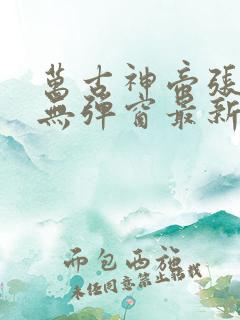 萬古神帝張
無彈窗最新
而包西施
未经同意禁止转载